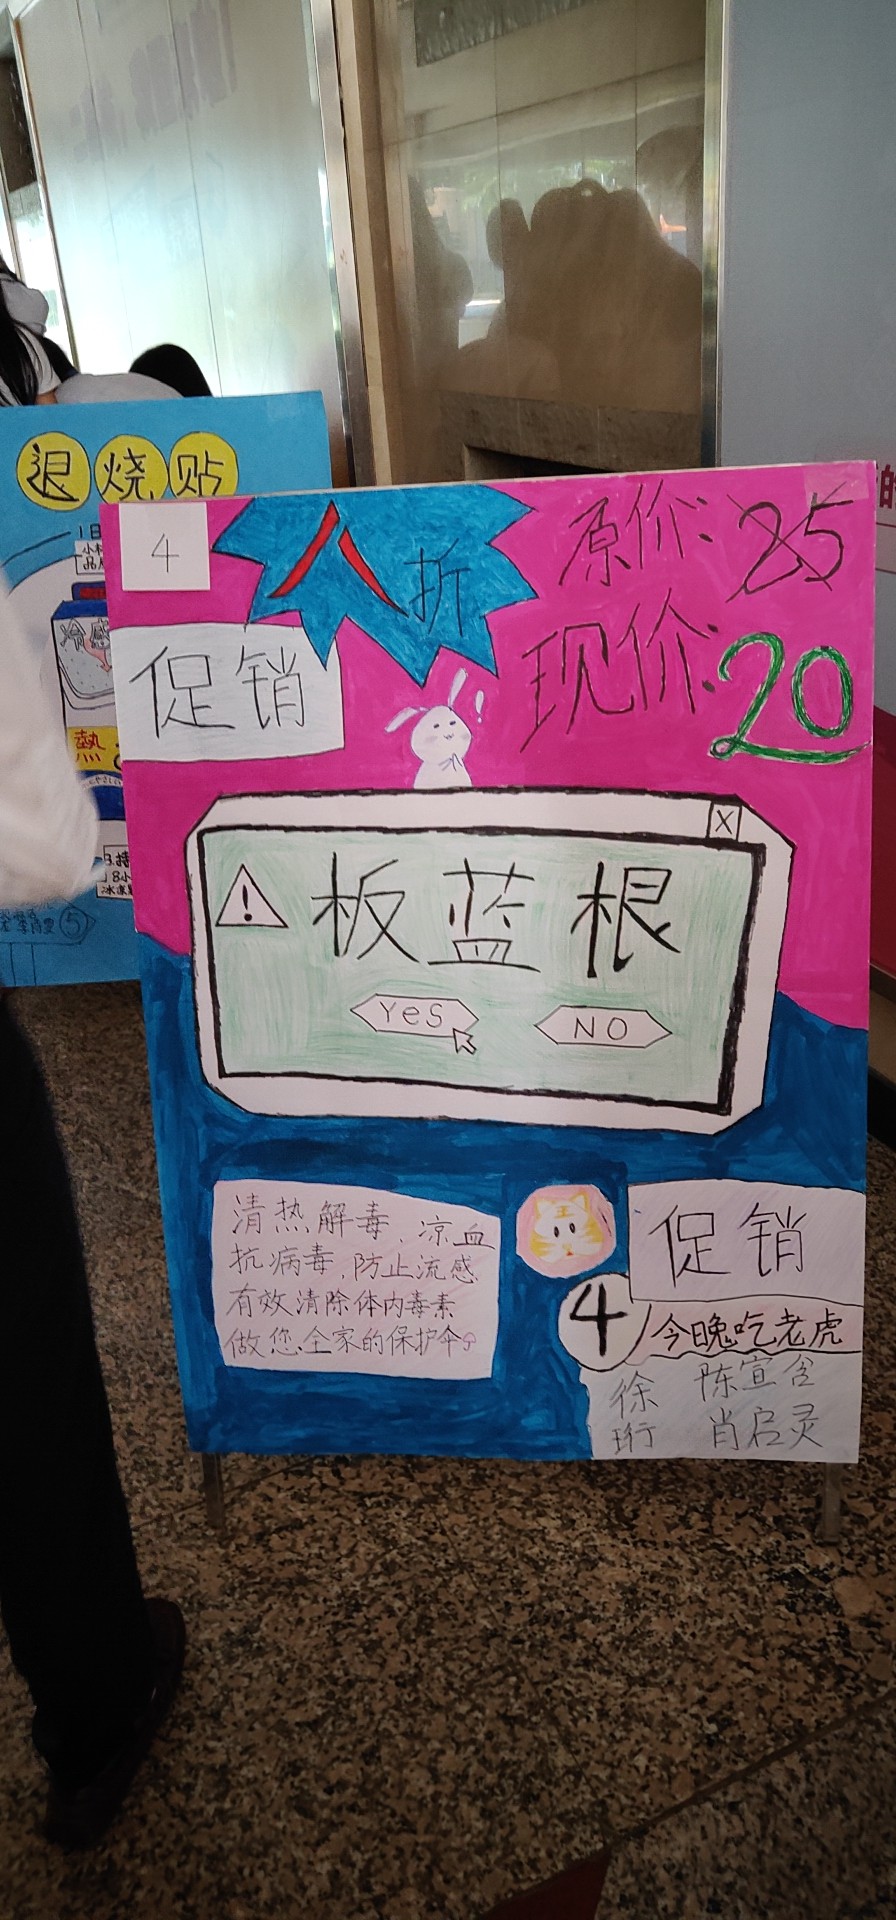 退烧贴
4
八折
原价:25
现价:20
促销
冷感
板蓝根
X
!
Yes
NO
清热解毒,凉血
抗病毒,防止流感
有效清除体内毒素
做您全家的保护伞
王
促销
4
今晚吃老虎
徐珩
陈宣含
肖启灵
5